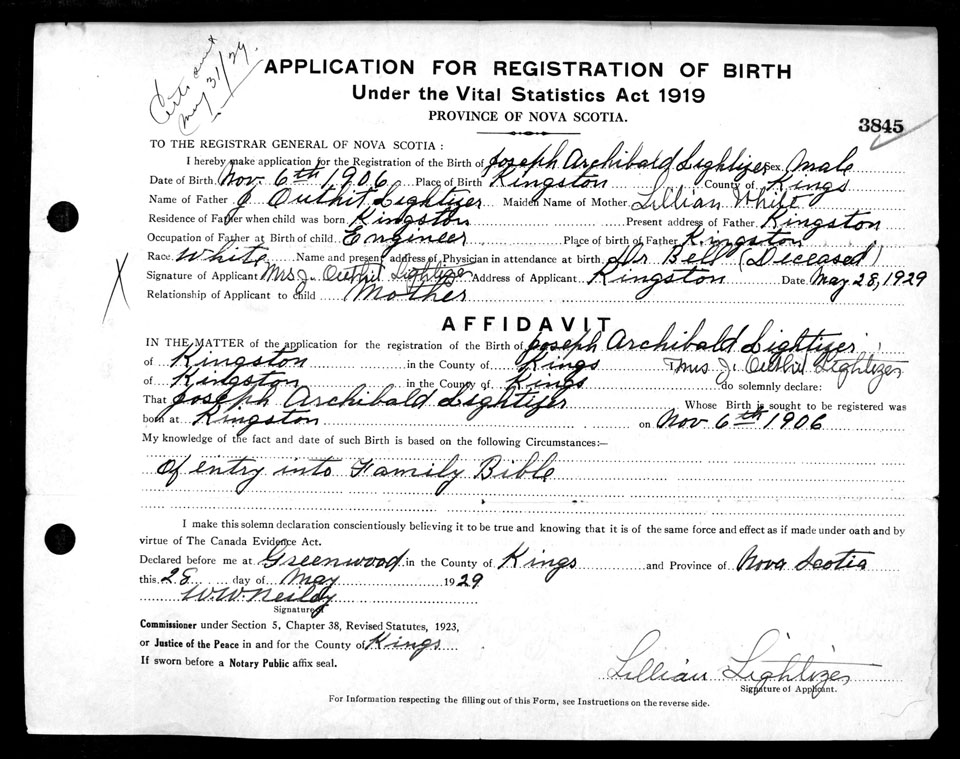 Certs sent
May 31/29.
APPLICATION FOR REGISTRATION OF BIRTH
Under the Vital Statistics Act 1919
PROVINCE OF NOVA SCOTIA.
3845
TO THE REGISTRAR GENERAL OF NOVA SCOTIA :
I hereby make application for the Registration of the Birth of Joseph Archibald Lightizer Sex Male
Date of Birth Nov. 6th 1906 Place of Birth Kingston County of Kings
Name of Father J Outhit Lightizer Maiden Name of Mother Lillian White
Residence of Father when child was born Kingston Present address of Father Kingston
Occupation of Father at Birth of child Engineer Place of birth of Father Kingston
Race White Name and present address of Physician in attendance at birth Dr Bell (Deceased)
Signature of Applicant Mrs J. Outhit Lightizer Address of Applicant Kingston Date May 28, 1929
Relationship of Applicant to child Mother
X
AFFIDAVIT
IN THE MATTER of the application for the registration of the Birth of Joseph Archibald Lightizer
of Kingston in the County of Kings I Mrs J. Outhit Lightizer
of Kingston in the County of Kings do solemnly declare:
That Joseph Archibald Lightizer Whose Birth is sought to be registered was
born at Kingston on Nov 6th 1906
My knowledge of the fact and date of such Birth is based on the following Circumstances:—
Of entry into Family Bible
I make this solemn declaration conscientiously believing it to be true and knowing that it is of the same force and effect as if made under oath and by
virtue of The Canada Evidence Act.
Declared before me at Greenwood in the County of Kings and Province of Nova Scotia
this 28 day of May 1929
W.W. Neily
Signature of
Commissioner under Section 5, Chapter 38, Revised Statutes, 1923,
or Justice of the Peace in and for the County of Kings
If sworn before a Notary Public affix seal.
Lillian Lightizer
Signature of Applicant.
For Information respecting the filling out of this Form, see Instructions on the reverse side.